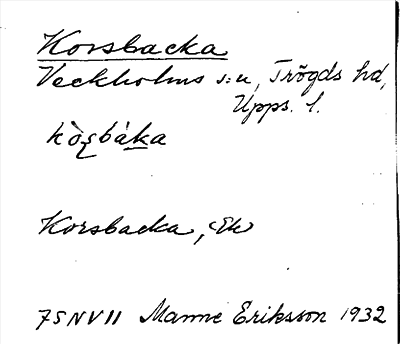 Korsbacka
Veckholms s:n, Trögds hd,
Upps. l.
kò̀ʂbáka
Korsbacka, Ek
7SNVII Manne Eriksson 1932